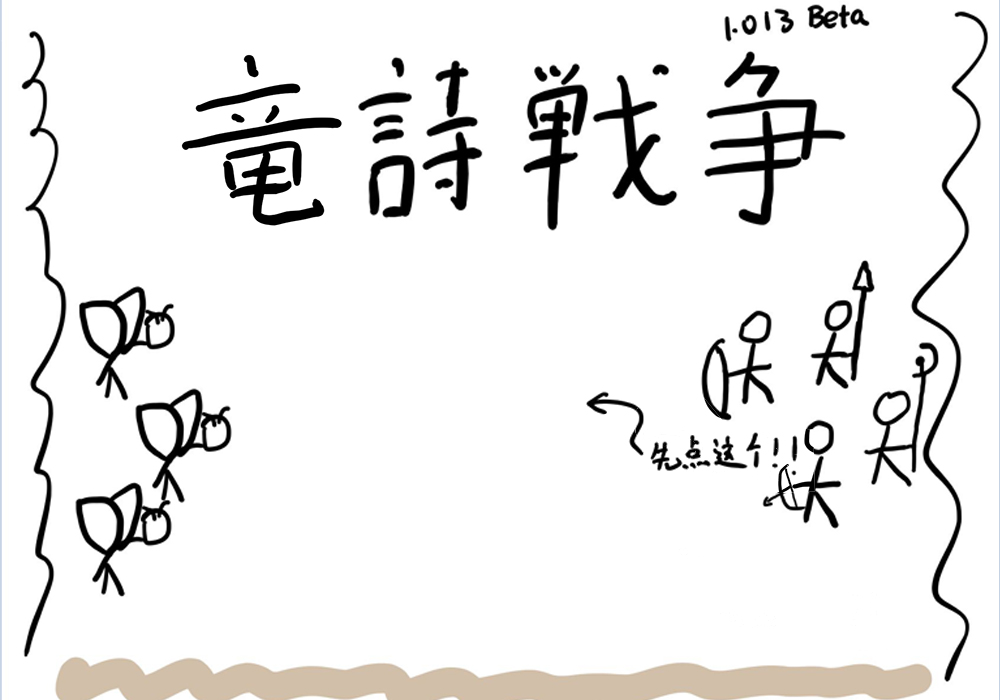 1.013 Beta
竜詩戦争
先点这个!!